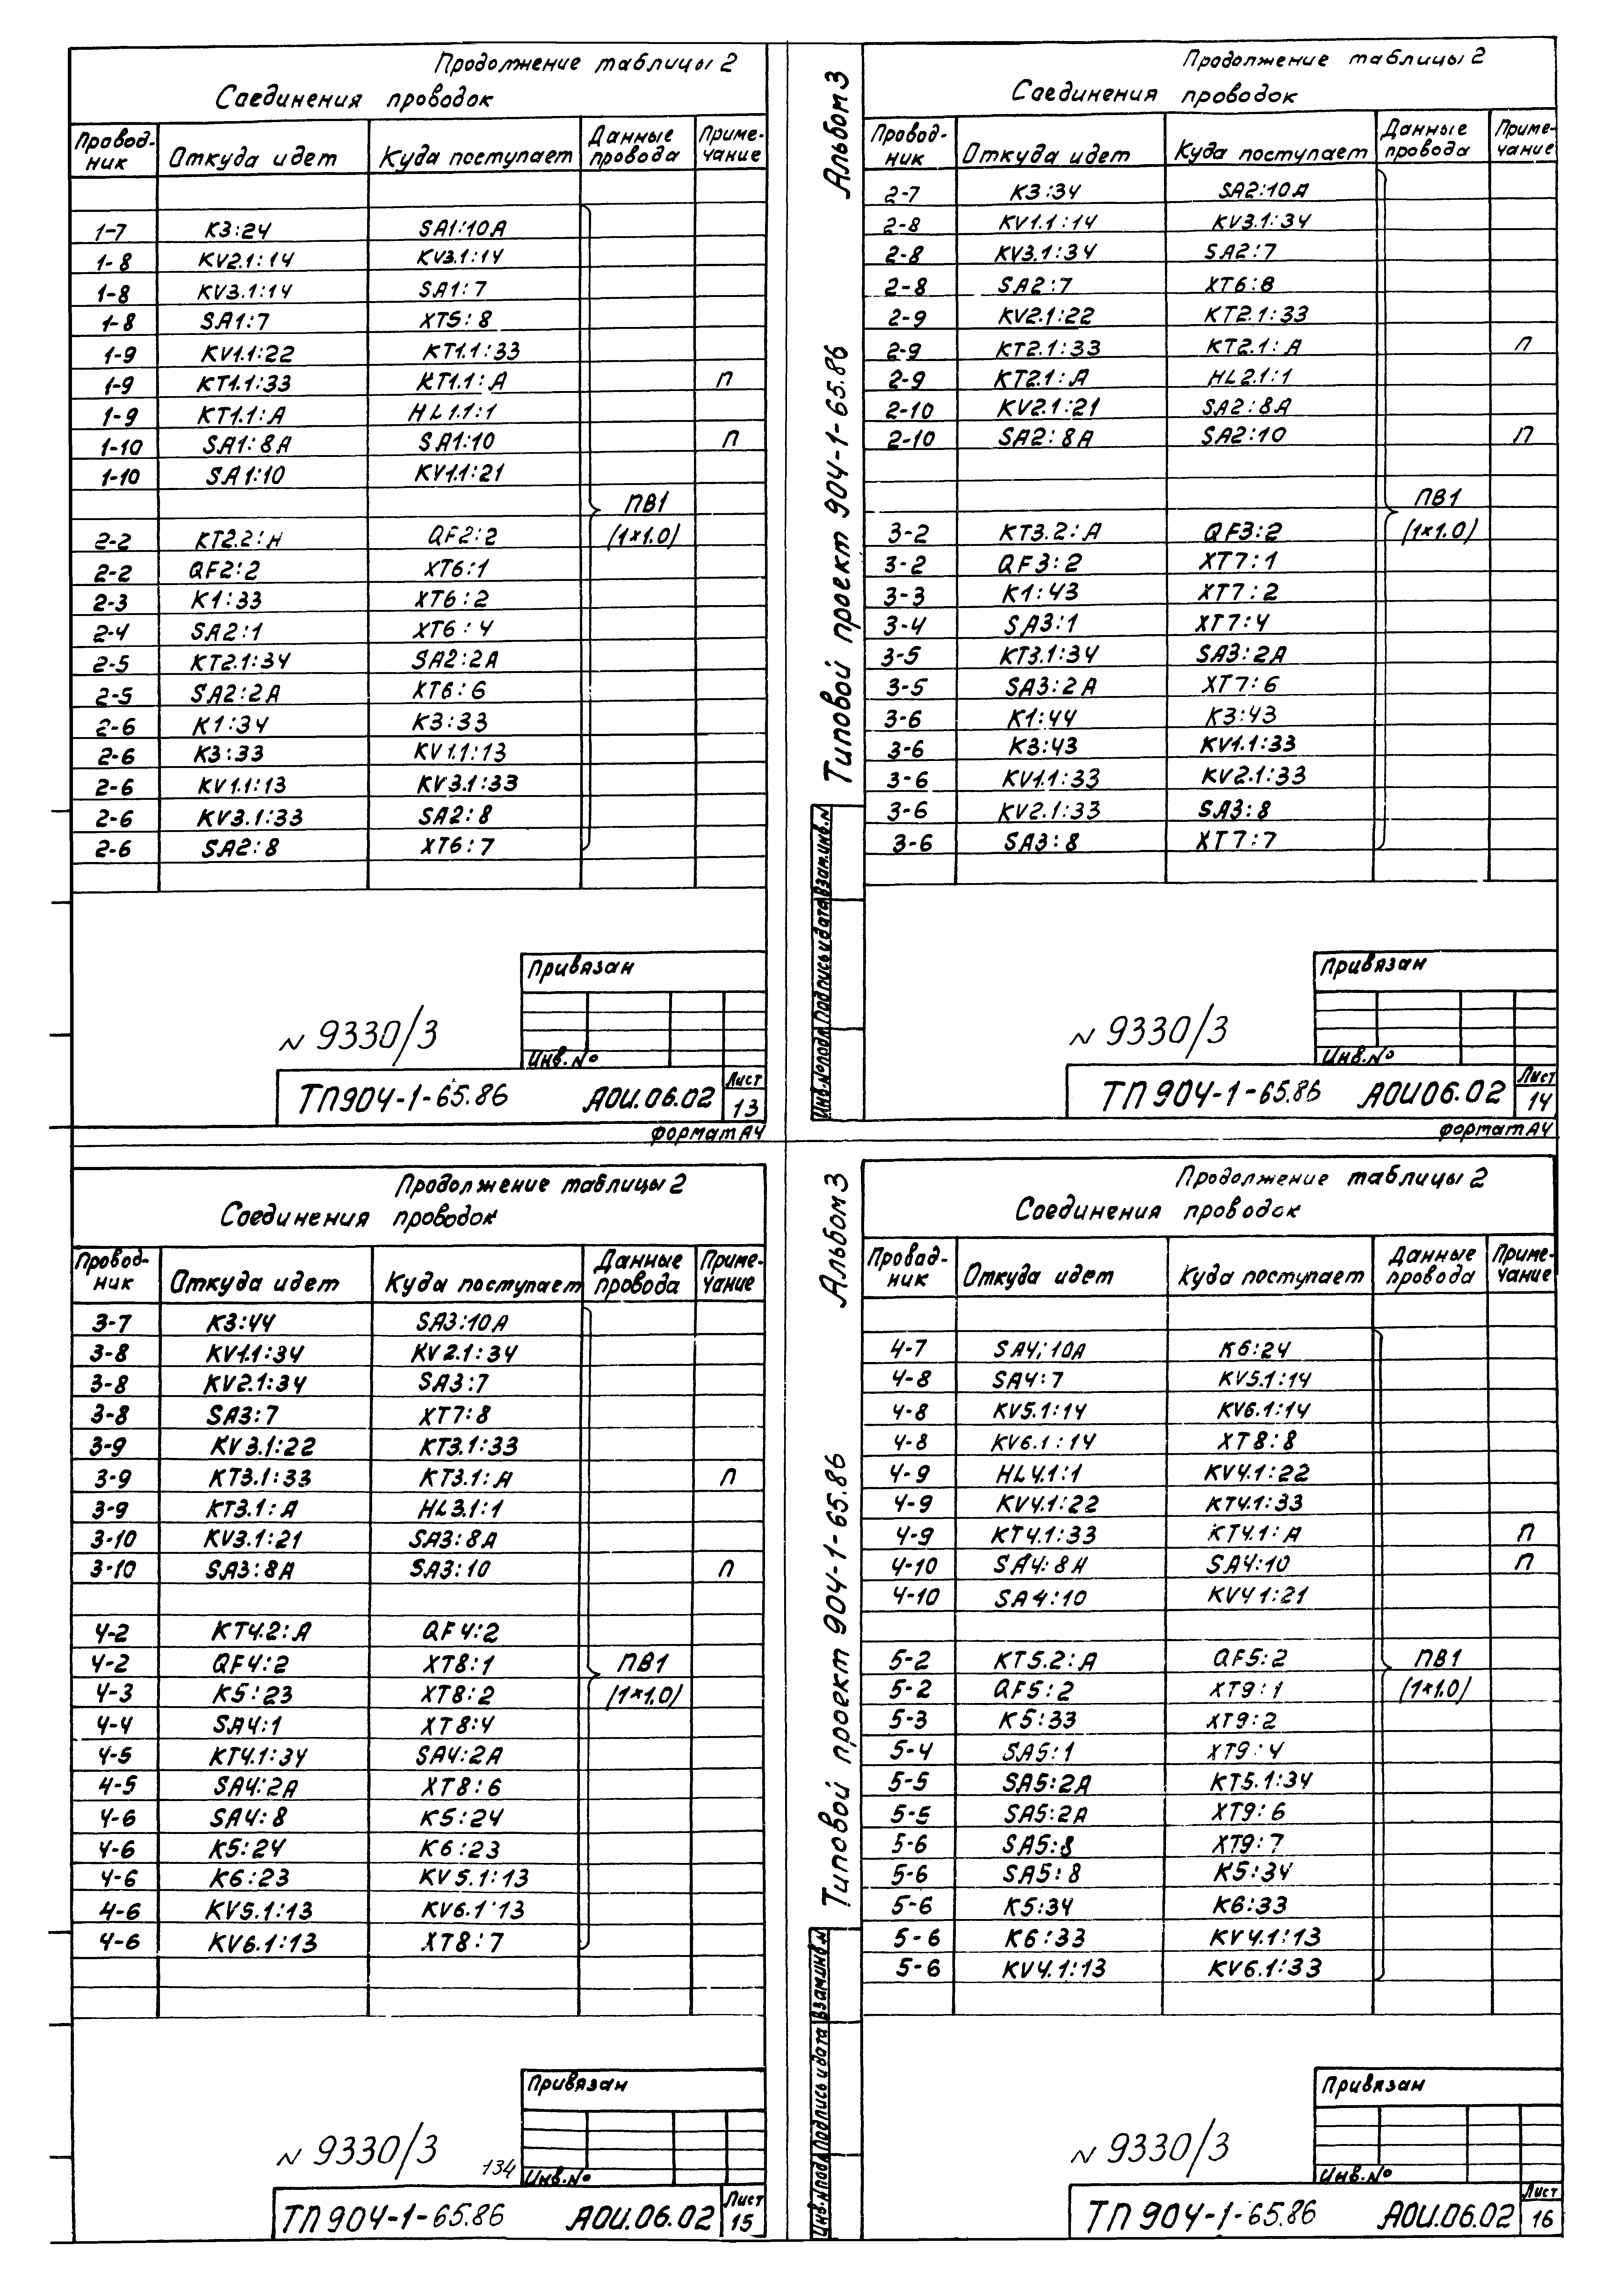 Продолжение таблицы 2
Соединения проводок
Провод-ник Откуда идет Куда поступает Данные провода Приме-чание
1-7 К3:24 SA1:10A
1-8 KV2.1:14 KV3.1:14
1-8 KV3.1:14 SA1:7
1-8 SA1:7 XT5:8
1-9 KV1.1:22 KT1.1:33
1-9 KT1.1:33 KT1.1:A п
1-9 KT1.1:A HL1.1:1
1-10 SA1:8A SA1:10 п
1-10 SA1:10 KV1.1:21
ПВ1
2-2 KT2.2:H QF2:2 (1*1.0)
2-2 QF2:2 XT6:1
2-3 K1:33 XT6:2
2-4 SA2:1 XT6:4
2-5 KT2.1:34 SA2:2A
2-5 SA2:2A XT6:6
2-6 K1:34 K3:33
2-6 K3:33 KV1.1:13
2-6 KV1.1:13 KV3.1:33
2-6 KV3.1:33 SA2:8
2-6 SA2:8 XT6:7
Привязан
N 9330/3
Инв.№
ТП 904-1-65.86 АОИ.06.02 Лист 13
формат А4
Альбом 3
Типовой проект 904-1-65.86
Инв.№ подл. Подпись и дата Взам.инв.N
Продолжение таблицы 2
Соединения проводок
Провод-ник Откуда идет Куда поступает Данные провода Приме-чание
2-7 K3:34 SA2:10A
2-8 KV1.1:14 KV3.1:34
2-8 KV3.1:34 SA2:7
2-8 SA2:7 XT6:8
2-9 KV2.1:22 KT2.1:33
2-9 KT2.1:33 KT2.1:A п
2-9 KT2.1:A HL2.1:1
2-10 KV2.1:21 SA2:8A
2-10 SA2:8A SA2:10 п
ПВ1
3-2 KT3.2:A QF3:2 (1*1.0)
3-2 QF3:2 XT7:1
3-3 K1:43 XT7:2
3-4 SA3:1 XT7:4
3-5 KT3.1:34 SA3:2A
3-5 SA3:2A XT7:6
3-6 K1:44 K3:43
3-6 K3:43 KV1.1:33
3-6 KV1.1:33 KV2.1:33
3-6 KV2.1:33 SA3:8
3-6 SA3:8 XT7:7
Привязан
N 9330/3
Инв.№
ТП 904-1-65.86 АОИ06.02 Лист 14
формат А4
Продолжение таблицы 2
Соединения проводок
Провод-ник Откуда идет Куда поступает Данные провода Приме-чание
3-7 K3:44 SA3:10A
3-8 KV1.1:34 KV2.1:34
3-8 KV2.1:34 SA3:7
3-8 SA3:7 XT7:8
3-9 KV3.1:22 KT3.1:33
3-9 KT3.1:33 KT3.1:A п
3-9 KT3.1:A HL3.1:1
3-10 KV3.1:21 SA3:8A
3-10 SA3:8A SA3:10 п
4-2 KT4.2:A QF4:2
4-2 QF4:2 XT8:1 ПВ1
4-3 K5:23 XT8:2 (1*1.0)
4-4 SA4:1 XT8:4
4-5 KT4.1:34 SA4:2A
4-5 SA4:2A XT8:6
4-6 SA4:8 K5:24
4-6 K5:24 K6:23
4-6 K6:23 KV5.1:13
4-6 KV5.1:13 KV6.1:13
4-6 KV6.1:13 XT8:7
Привязан
N 9330/3
134
Инв.№
ТП 904-1-65.86 АОИ.06.02 Лист 15
Альбом 3
Типовой проект 904-1-65.86
Инв.N подл. Подпись и дата Взам.инв.N
Продолжение таблицы 2
Соединения проводок
Провод-ник Откуда идет Куда поступает Данные провода Приме-чание
4-7 SA4:10A K6:24
4-8 SA4:7 KV5.1:14
4-8 KV5.1:14 KV6.1:14
4-8 KV6.1:14 XT8:8
4-9 HL4.1:1 KV4.1:22
4-9 KV4.1:22 KT4.1:33
4-9 KT4.1:33 KT4.1:A п
4-10 SA4:8A SA4:10 п
4-10 SA4:10 KV4 1:21
5-2 KT5.2:A QF5:2 ПВ1
5-2 QF5:2 XT9:1 (1*1.0)
5-3 K5:33 XT9:2
5-4 SA5:1 XT9:4
5-5 SA5:2A KT5.1:34
5-5 SA5:2A XT9:6
5-6 SA5:8 XT9:7
5-6 SA5:8 K5:34
5-6 K5:34 K6:33
5-6 K6:33 KV4.1:13
5-6 KV4.1:13 KV6.1:33
Привязан
N 9330/3
Инв.№
ТП 904-1-65.86 АОИ.06.02 Лист 16